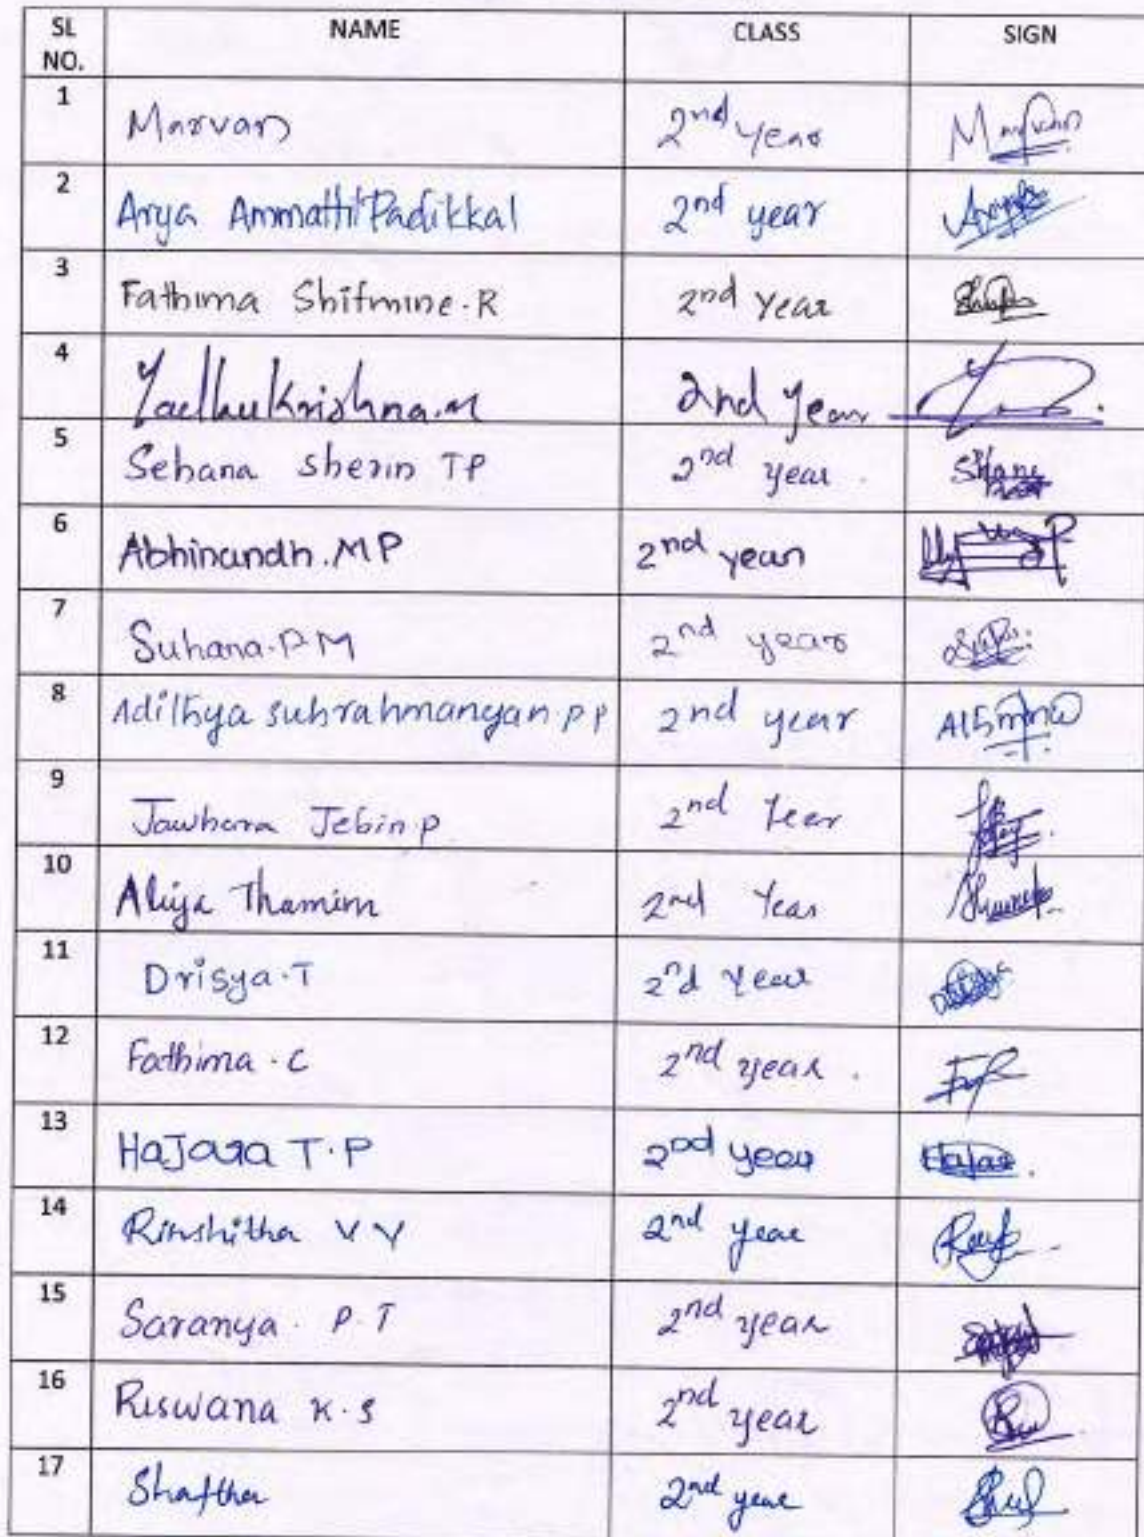 SL NO. NAME CLASS SIGN
1 Marvan 2nd year
2 Arya Ammattil Padikkal 2nd year
3 Fathima Shifmine.R 2nd Year
4 Yadhukrishna.M 2nd Year
5 Sehana sherin TP 2nd year
6 Abhinandh.MP 2nd year
7 Suhana.PM 2nd year
8 Adithya subrahmanyan.pp 2nd year
9 Jawhara Jebin.p 2nd Year
10 Aliya Thamim 2nd Year
11 Drisya.T 2nd Year
12 Fathima.C 2nd year.
13 HaJara T.P 2nd year Hajara.
14 Rinshitha V V 2nd year
15 Saranya. P.T 2nd year
16 Riswana K.S 2nd year
17 2nd year